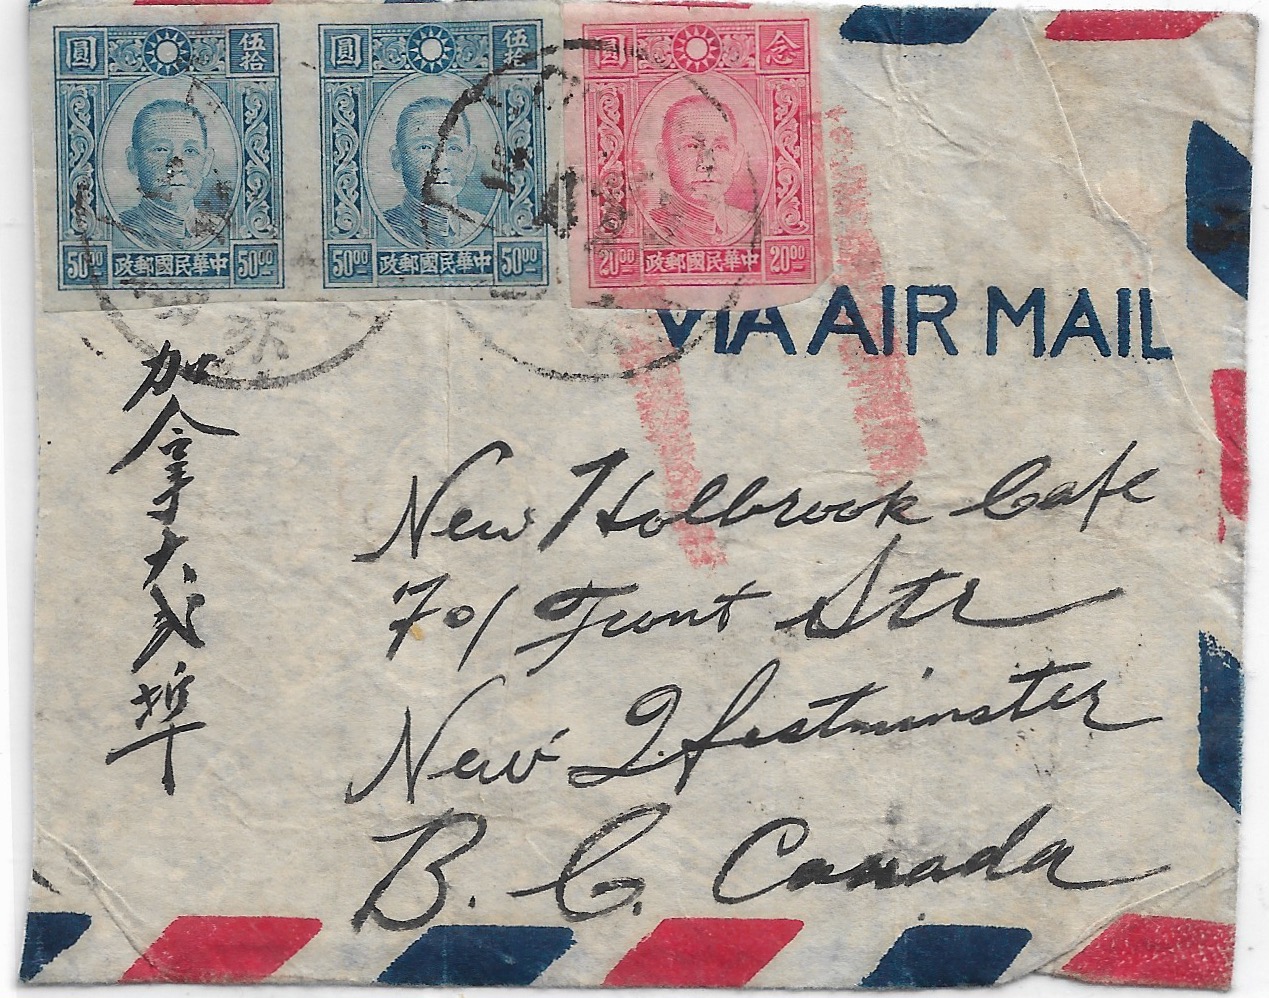 圓 伍拾
50 00 中華民國郵政 50 00
圓 伍拾
50 00 中華民國郵政 50 00
圓 念
20 00 中華民國郵政 20 00
VIA AIR MAIL
加拿大二埠
New Holbrook Cafe
701 Front Str
New Westminster
B. C. Canada